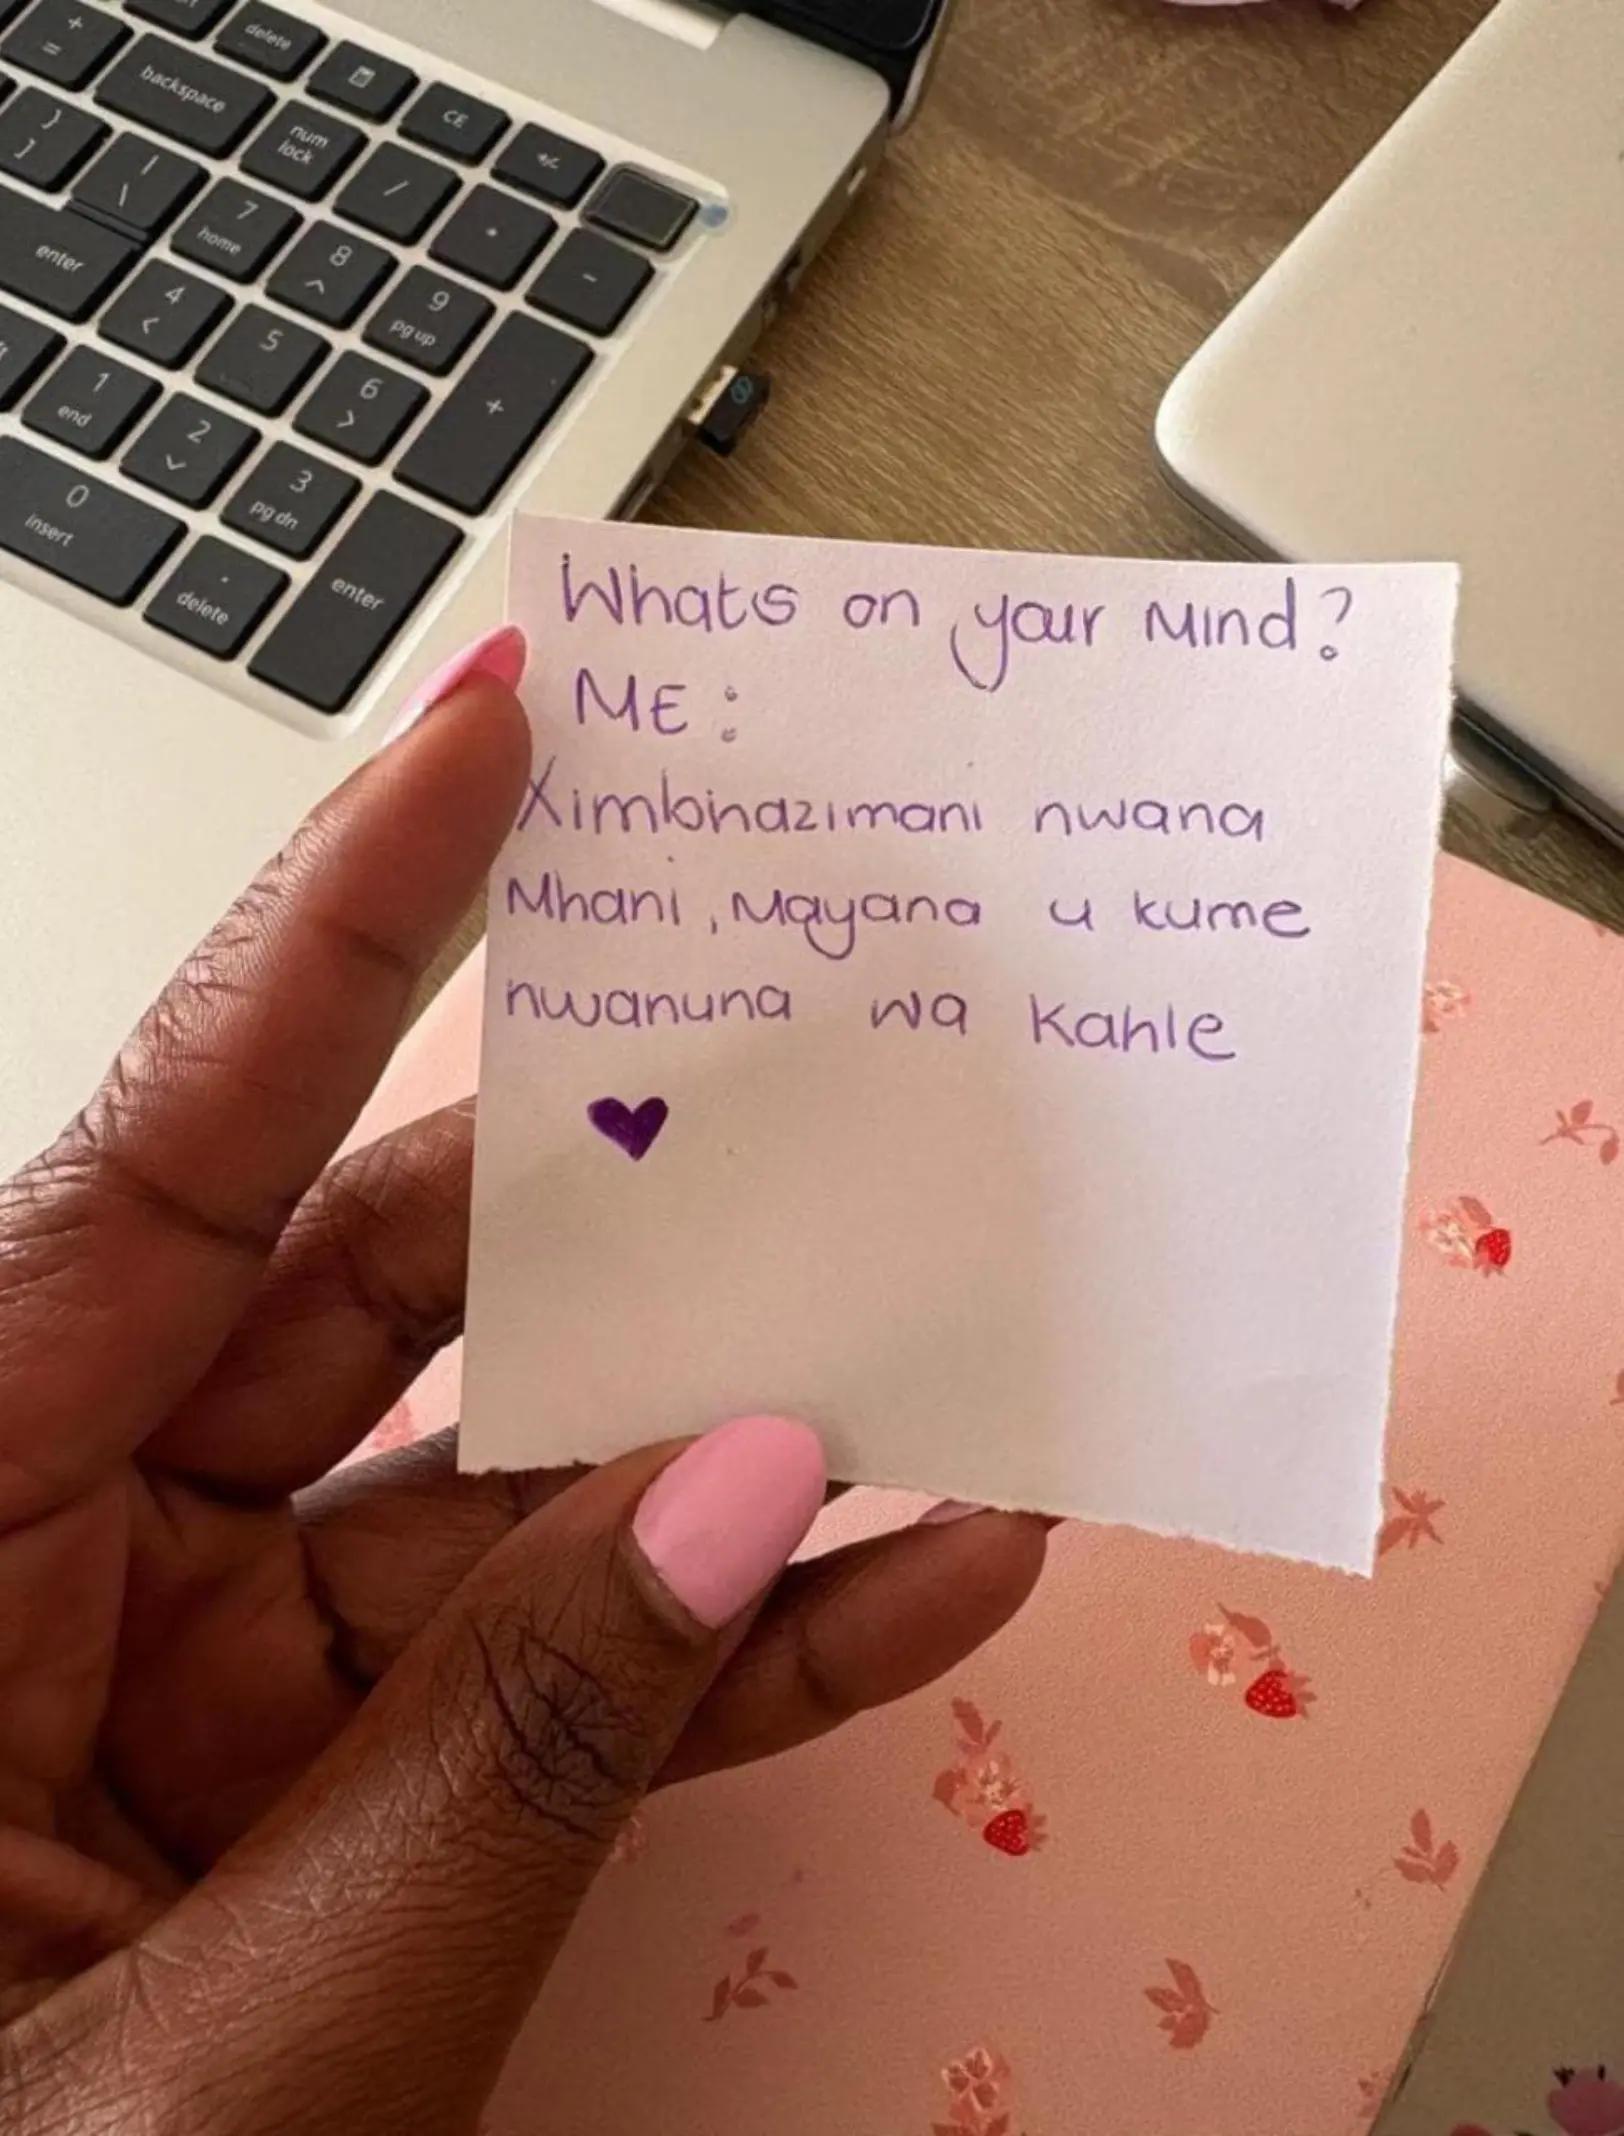 +
=
delete
backspace
CE
+/-
}
]
|
\
num
lock
/
*
-
enter
7
home
8
^
9
pg up
+
4
<
5
6
>
1
end
2
3
pg dn
0
insert
.
delete
enter
Whats on your Mind?
ME:
Ximbhazimani nwana
Mhani, Mayana u kume
nwanuna wa Kahle